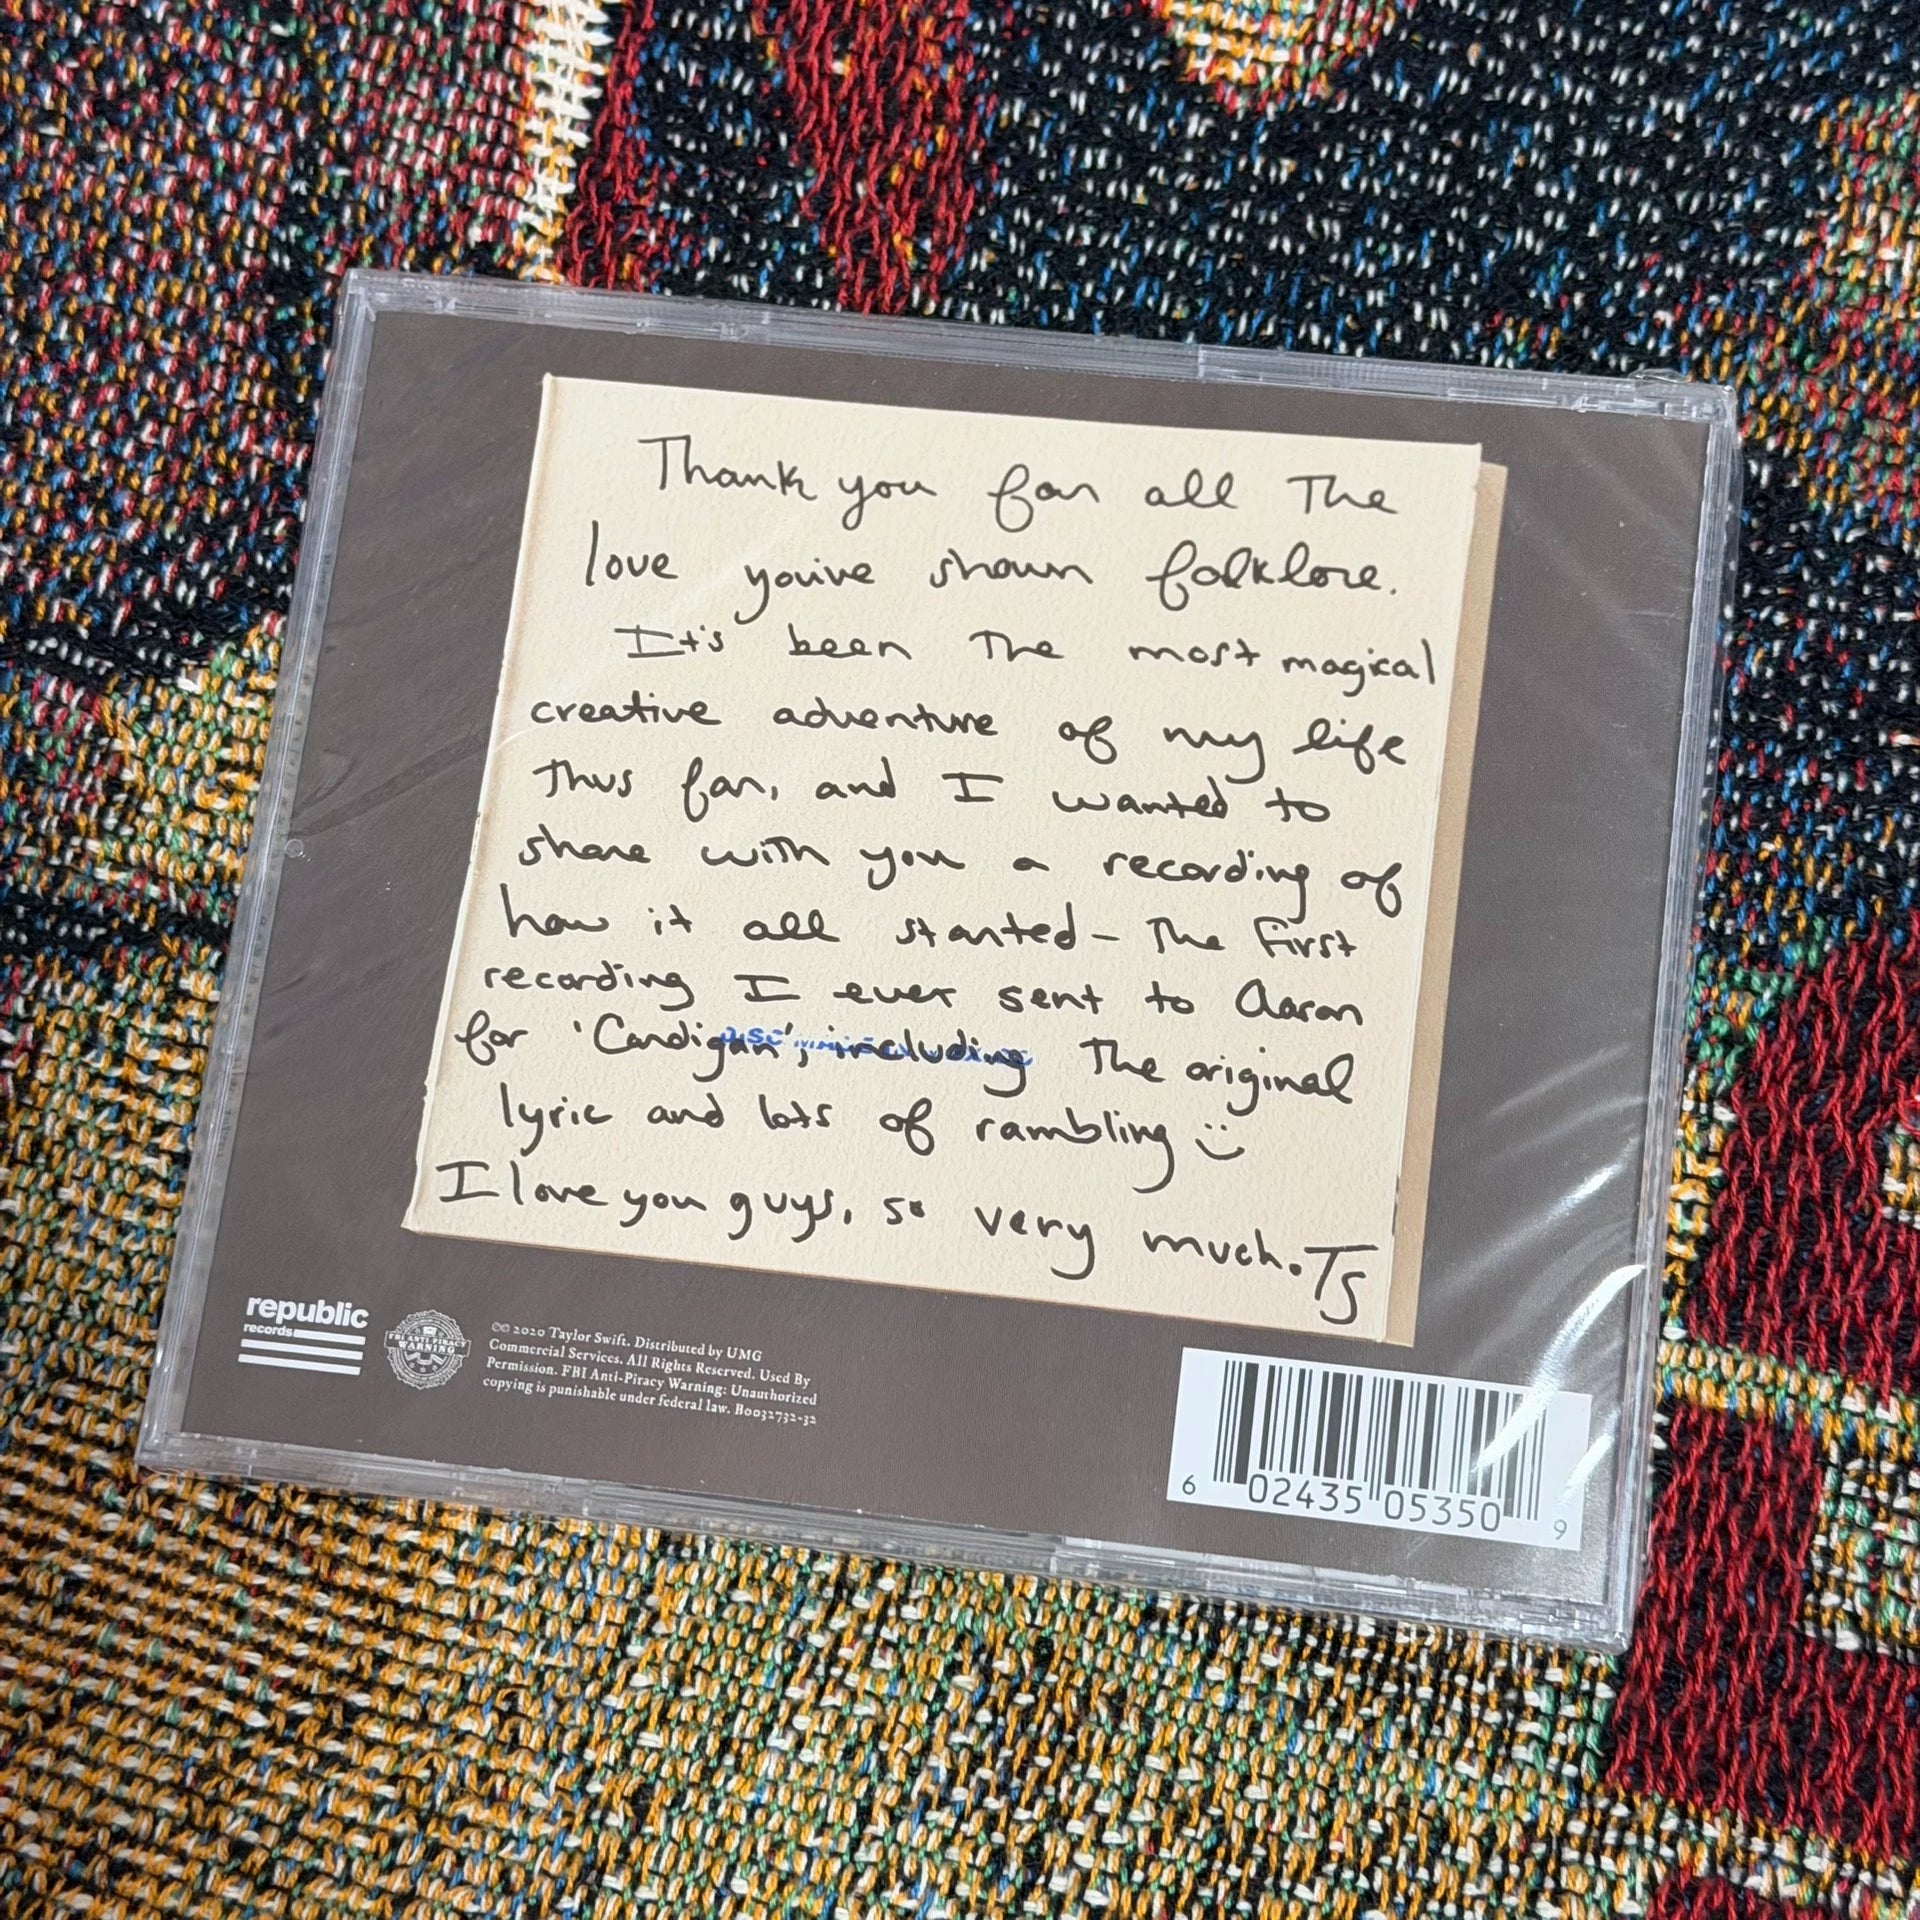 Thank you for all the
love you've shown folklore.
It's been the most magical
creative adventure of my life
thus far, and I wanted to
share with you a recording of
how it all started - the first
recording I ever sent to Aaron
for 'Cardigan', including the original
lyric and lots of rambling :)
I love you guys, so very much. TS
republic
records
FBI ANTI-PIRACY
WARNING
℗© 2020 Taylor Swift. Distributed by UMG
Commercial Services. All Rights Reserved. Used By
Permission. FBI Anti-Piracy Warning: Unauthorized
copying is punishable under federal law. B0032732-32
6 02435 05350 9